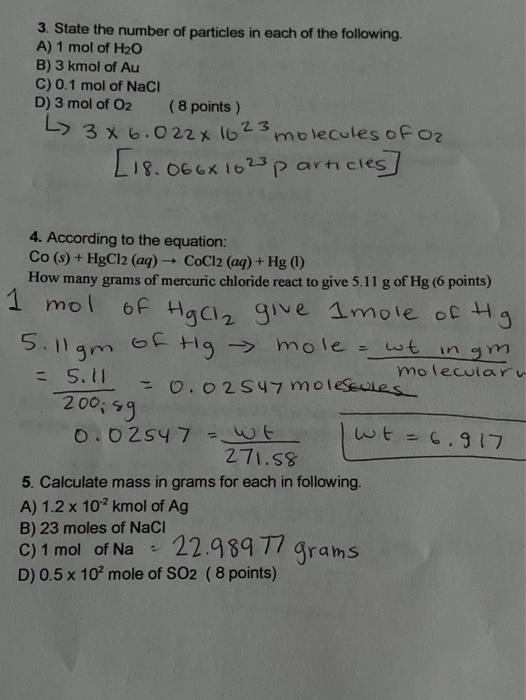 3. State the number of particles in each of the following.
A) 1 mol of H2O
B) 3 kmol of Au
C) 0.1 mol of NaCl
D) 3 mol of O2 ( 8 points )
↳ 3 x 6.022 x 10²³ molecules of O2
[18.066x 10²³ particles]
4. According to the equation:
Co (s) + HgCl2 (aq) → CoCl2 (aq) + Hg (l)
How many grams of mercuric chloride react to give 5.11 g of Hg (6 points)
1 mol of HgCl₂ give 1mole of Hg
5.11gm of Hg → mole = wt in gm
molecular
= 5.11 = 0.02547
0.02547 = wt
271.58
wt = 6.917
5. Calculate mass in grams for each in following.
A) 1.2 x 10⁻² kmol of Ag
B) 23 moles of NaCl
C) 1 mol of Na = 22.98977 grams
D) 0.5 x 10² mole of SO2 ( 8 points)